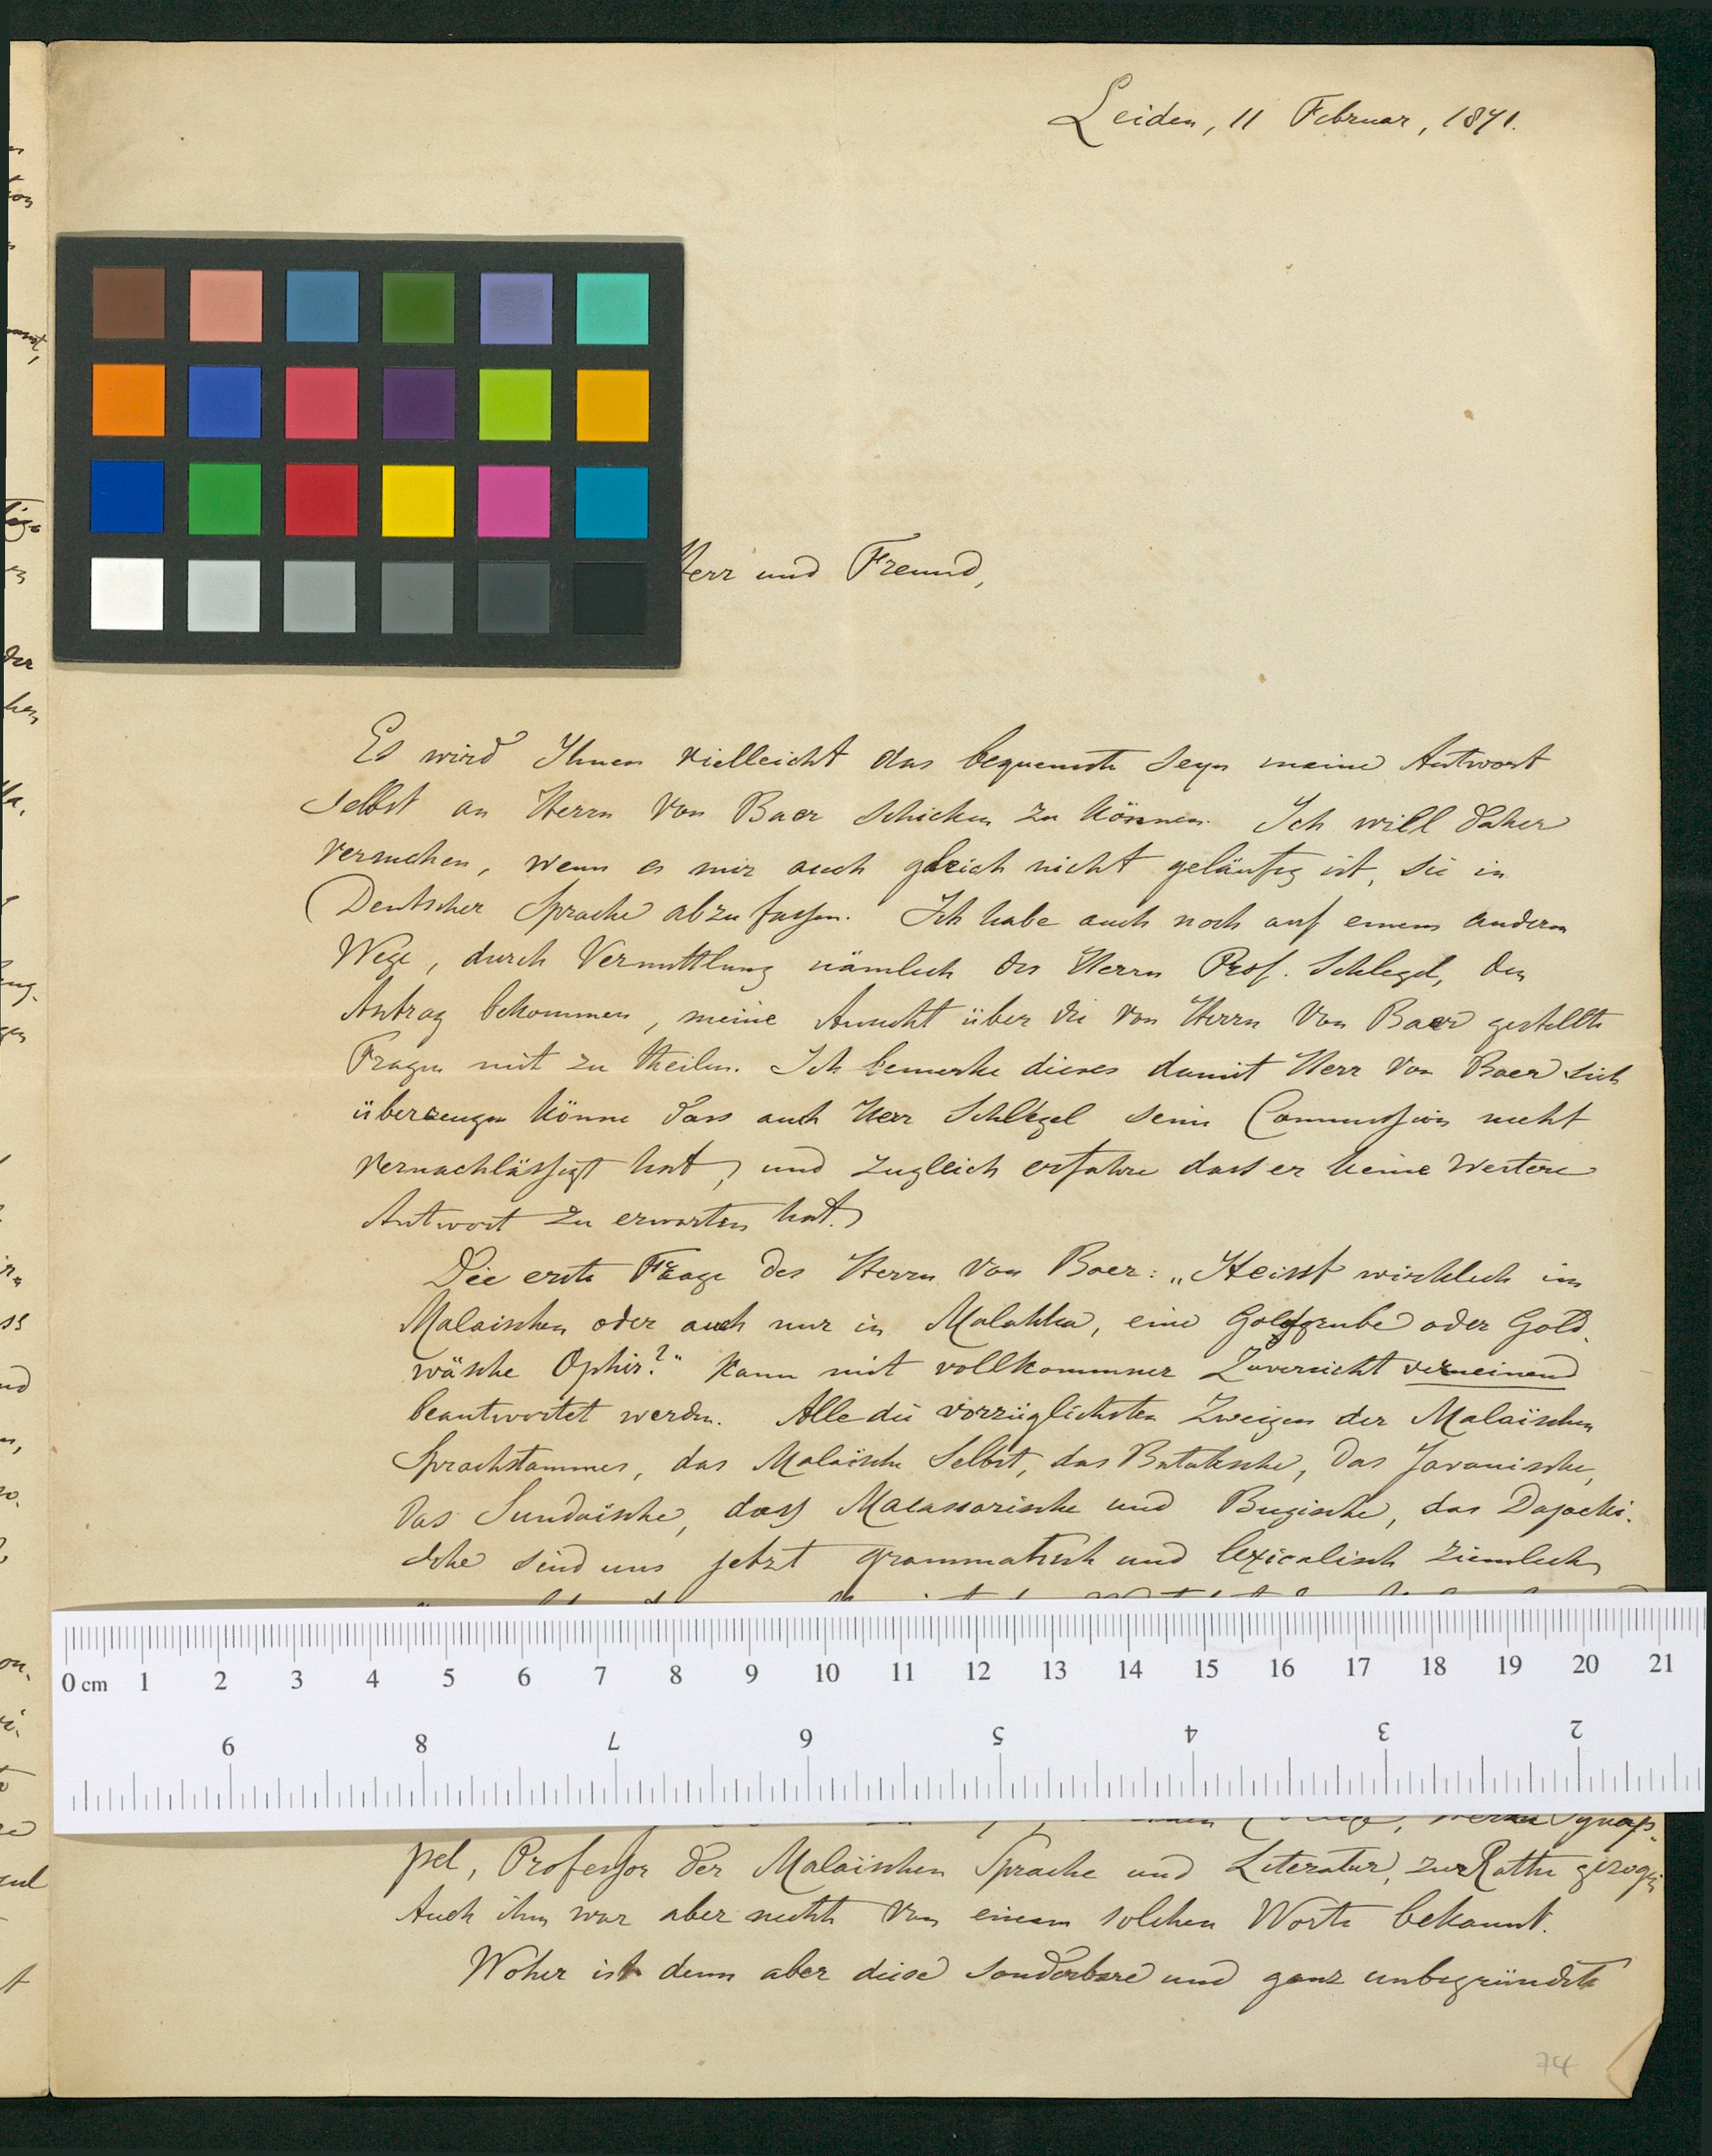 Leiden, 11 Februar, 1871.
Herr und Freund,
Es wird Ihnen vielleicht das bequemste seyn meine Antwort
selbst an Herrn von Baer schicken zu können. Ich will daher
versuchen, wenn es mir auch gleich nicht geläufig ist, sie in
Deutscher Sprache abzufassen. Ich habe auch noch auf einem andern
Wege, durch Vermittlung nämlich des Herrn Prof. Schlegel, den
Antrag bekommen, meine Ansicht über die von Herrn von Baer gestellte
Fragen mit zu theilen. Ich bemerke dieses damit Herr von Baer sich
überzeugen könne dass auch Herr Schlegel seine Commission nicht
vernachlässigt hat, und zugleich erfahre dass er keine weitere
Antwort zu erwarten hat.
Die erste Frage des Herrn von Baer: „Heisst wirklich im
Malaischen oder auch nur in Malakka, eine Goldgrube oder Gold-
wäsche Ophir?" kann mit vollkommner Zuversicht verneinend
beantwortet werden. Alle die vorzüglichsten Zweigen der Malaischen
Sprachstammes, das Malaische selbst, das Bataksche, das Javanische,
das Sundaische, das Macassarische und Buginische, das Dajacki-
sche sind uns jetzt grammatisch und lexicalisch ziemlich
pel, Professor der Malaischen Sprache und Literatur, zur Rathe gezogen
Auch ihm war aber nichts von einem solchen Worte bekannt.
Woher ist denn aber diese sonderbare und ganz unbegründete
74
0 cm 1 2 3 4 5 6 7 8 9 10 11 12 13 14 15 16 17 18 19 20 21
9 8 7 6 5 4 3 2